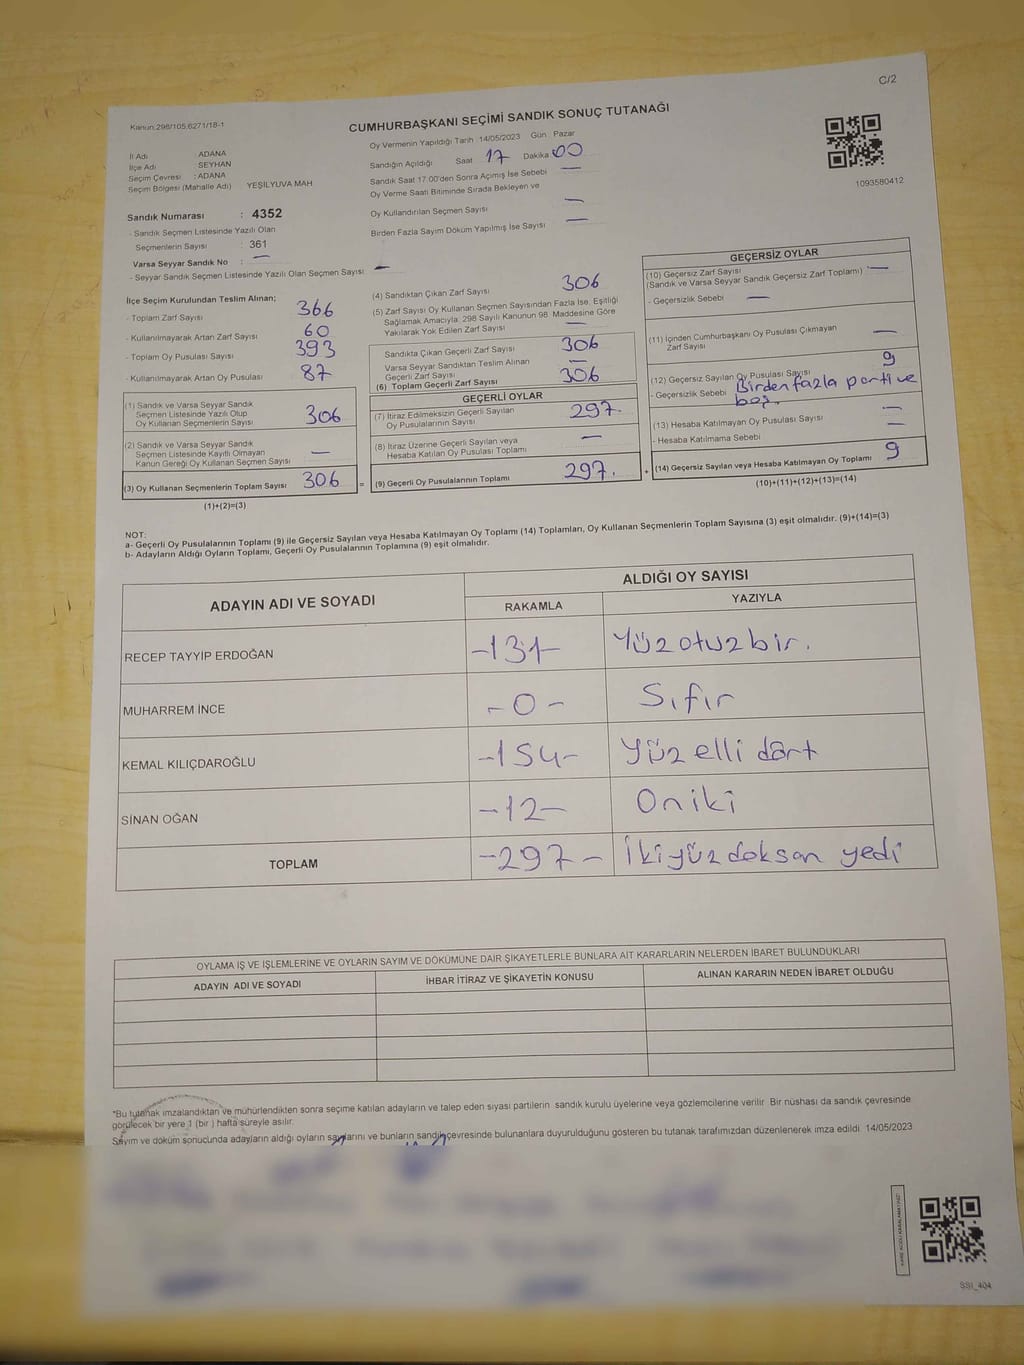 C/2
Kanun:298/105,6271/18-1
CUMHURBAŞKANI SEÇİMİ SANDIK SONUÇ TUTANAĞI
Oy Vermenin Yapıldığı Tarih 14/05/2023 Gün : Pazar
İl Adı : ADANA
İlçe Adı : SEYHAN
Seçim Çevresi : ADANA
Seçim Bölgesi (Mahalle Adı) YEŞİLYUVA MAH
Sandığın Açıldığı Saat 17 Dakika 00
Sandık Saat 17.00'den Sonra Açımış İse Sebebi —
Oy Verme Saati Bitiminde Sırada Bekleyen ve
Oy Kullandırılan Seçmen Sayısı —
Birden Fazla Sayım Döküm Yapılmış İse Sayısı —
1093580412
Sandık Numarası : 4352
- Sandık Seçmen Listesinde Yazılı Olan
Seçmenlerin Sayısı : 361
Varsa Seyyar Sandık No : —
- Seyyar Sandık Seçmen Listesinde Yazılı Olan Seçmen Sayısı : —
İlçe Seçim Kurulundan Teslim Alınan;
- Toplam Zarf Sayısı 366
- Kullanılmayarak Artan Zarf Sayısı 60
- Toplam Oy Pusulası Sayısı 393
- Kullanılmayarak Artan Oy Pusulası 87
(1) Sandık ve Varsa Seyyar Sandık
Seçmen Listesinde Yazılı Olup
Oy Kullanan Seçmenlerin Sayısı 306
(2) Sandık ve Varsa Seyyar Sandık
Seçmen Listesinde Kayıtlı Olmayan
Kanun Gereği Oy Kullanan Seçmen Sayısı —
(3) Oy Kullanan Seçmenlerin Toplam Sayısı 306
(1)+(2)=(3)
(4) Sandıktan Çıkan Zarf Sayısı 306
(5) Zarf Sayısı Oy Kullanan Seçmen Sayısından Fazla İse, Eşitliği
Sağlamak Amacıyla, 298 Sayılı Kanunun 98. Maddesine Göre
Yakılarak Yok Edilen Zarf Sayısı —
Sandıkta Çıkan Geçerli Zarf Sayısı 306
Varsa Seyyar Sandıktan Teslim Alınan
Geçerli Zarf Sayısı —
(6) Toplam Geçerli Zarf Sayısı 306
GEÇERLİ OYLAR
(7) İtiraz Edilmeksizin Geçerli Sayılan
Oy Pusulalarının Sayısı 297.
(8) İtiraz Üzerine Geçerli Sayılan veya
Hesaba Katılan Oy Pusulası Toplamı —
= (9) Geçerli Oy Pusulalarının Toplamı 297.
GEÇERSİZ OYLAR
(10) Geçersiz Zarf Sayısı
(Sandık ve Varsa Seyyar Sandık Geçersiz Zarf Toplamı) —
- Geçersizlik Sebebi —
(11) İçinden Cumhurbaşkanı Oy Pusulası Çıkmayan
Zarf Sayısı —
(12) Geçersiz Sayılan Oy Pusulası Sayısı 9
- Geçersizlik Sebebi Birden fazla parti ve
boş.
(13) Hesaba Katılmayan Oy Pusulası Sayısı —
- Hesaba Katılmama Sebebi —
+ (14) Geçersiz Sayılan veya Hesaba Katılmayan Oy Toplamı 9
(10)+(11)+(12)+(13)=(14)
NOT:
a- Geçerli Oy Pusulalarının Toplamı (9) ile Geçersiz Sayılan veya Hesaba Katılmayan Oy Toplamı (14) Toplamları, Oy Kullanan Seçmenlerin Toplam Sayısına (3) eşit olmalıdır. (9)+(14)=(3)
b- Adayların Aldığı Oyların Toplamı, Geçerli Oy Pusulalarının Toplamına (9) eşit olmalıdır.
ADAYIN ADI VE SOYADI
ALDIĞI OY SAYISI
RAKAMLA YAZIYLA
RECEP TAYYİP ERDOĞAN -131- Yüz otuz bir.
MUHARREM İNCE - 0 - Sıfır
KEMAL KILIÇDAROĞLU -154- Yüz elli dört
SİNAN OĞAN -12- On iki
TOPLAM -297- İki yüz doksan yedi
OYLAMA İŞ VE İŞLEMLERİNE VE OYLARIN SAYIM VE DÖKÜMÜNE DAİR ŞİKAYETLERLE BUNLARA AİT KARARLARIN NELERDEN İBARET BULUNDUKLARI
ADAYIN ADI VE SOYADI İHBAR İTİRAZ VE ŞİKAYETİN KONUSU ALINAN KARARIN NEDEN İBARET OLDUĞU
*Bu tutanak imzalandıktan ve mühürlendikten sonra seçime katılan adayların ve talep eden siyasi partilerin sandık kurulu üyelerine veya gözlemcilerine verilir. Bir nüshası da sandık çevresinde
görülecek bir yere 1 (bir ) hafta süreyle asılır.
Sayım ve döküm sonucunda adayların aldığı oyların sayılarını ve bunların sandık çevresinde bulunanlara duyurulduğunu gösteren bu tutanak tarafımızdan düzenlenerek imza edildi. 14/05/2023
SSI_404